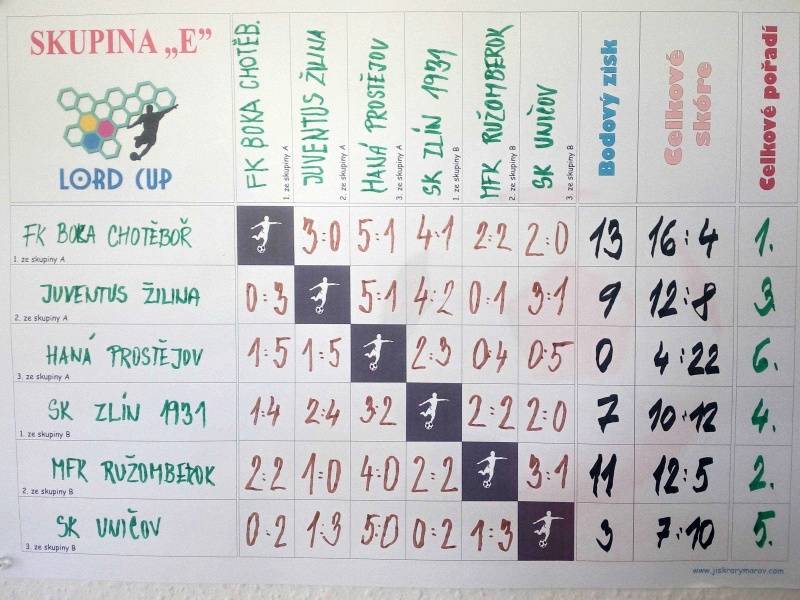 SKUPINA „E”
LORD CUP
FK BOKA CHOTĚB.
1. ze skupiny A
JUVENTUS ŽILINA
2. ze skupiny A
HANÁ PROSTĚJOV
3. ze skupiny A
SK ZLÍN 1931
1. ze skupiny B
MFK RUŽOMBEROK
2. ze skupiny B
SK UNIČOV
3. ze skupiny B
Bodový zisk
Celkové skóre
Celkové pořadí
FK BOKA CHOTĚBOŘ 3:0 5:1 4:1 2:2 2:0 13 16:4 1.
1. ze skupiny A
JUVENTUS ŽILINA 0:3 5:1 4:2 0:1 3:1 9 12:8 3.
2. ze skupiny A
HANÁ PROSTĚJOV 1:5 1:5 2:3 0:4 0:5 0 4:22 6.
3. ze skupiny A
SK ZLÍN 1931 1:4 2:4 3:2 2:2 2:0 7 10:12 4.
1. ze skupiny B
MFK RUŽOMBEROK 2:2 1:0 4:0 2:2 3:1 11 12:5 2.
2. ze skupiny B
SK UNIČOV 0:2 1:3 5:0 0:2 1:3 3 7:10 5.
3. ze skupiny B
www.jiskrarymarov.com